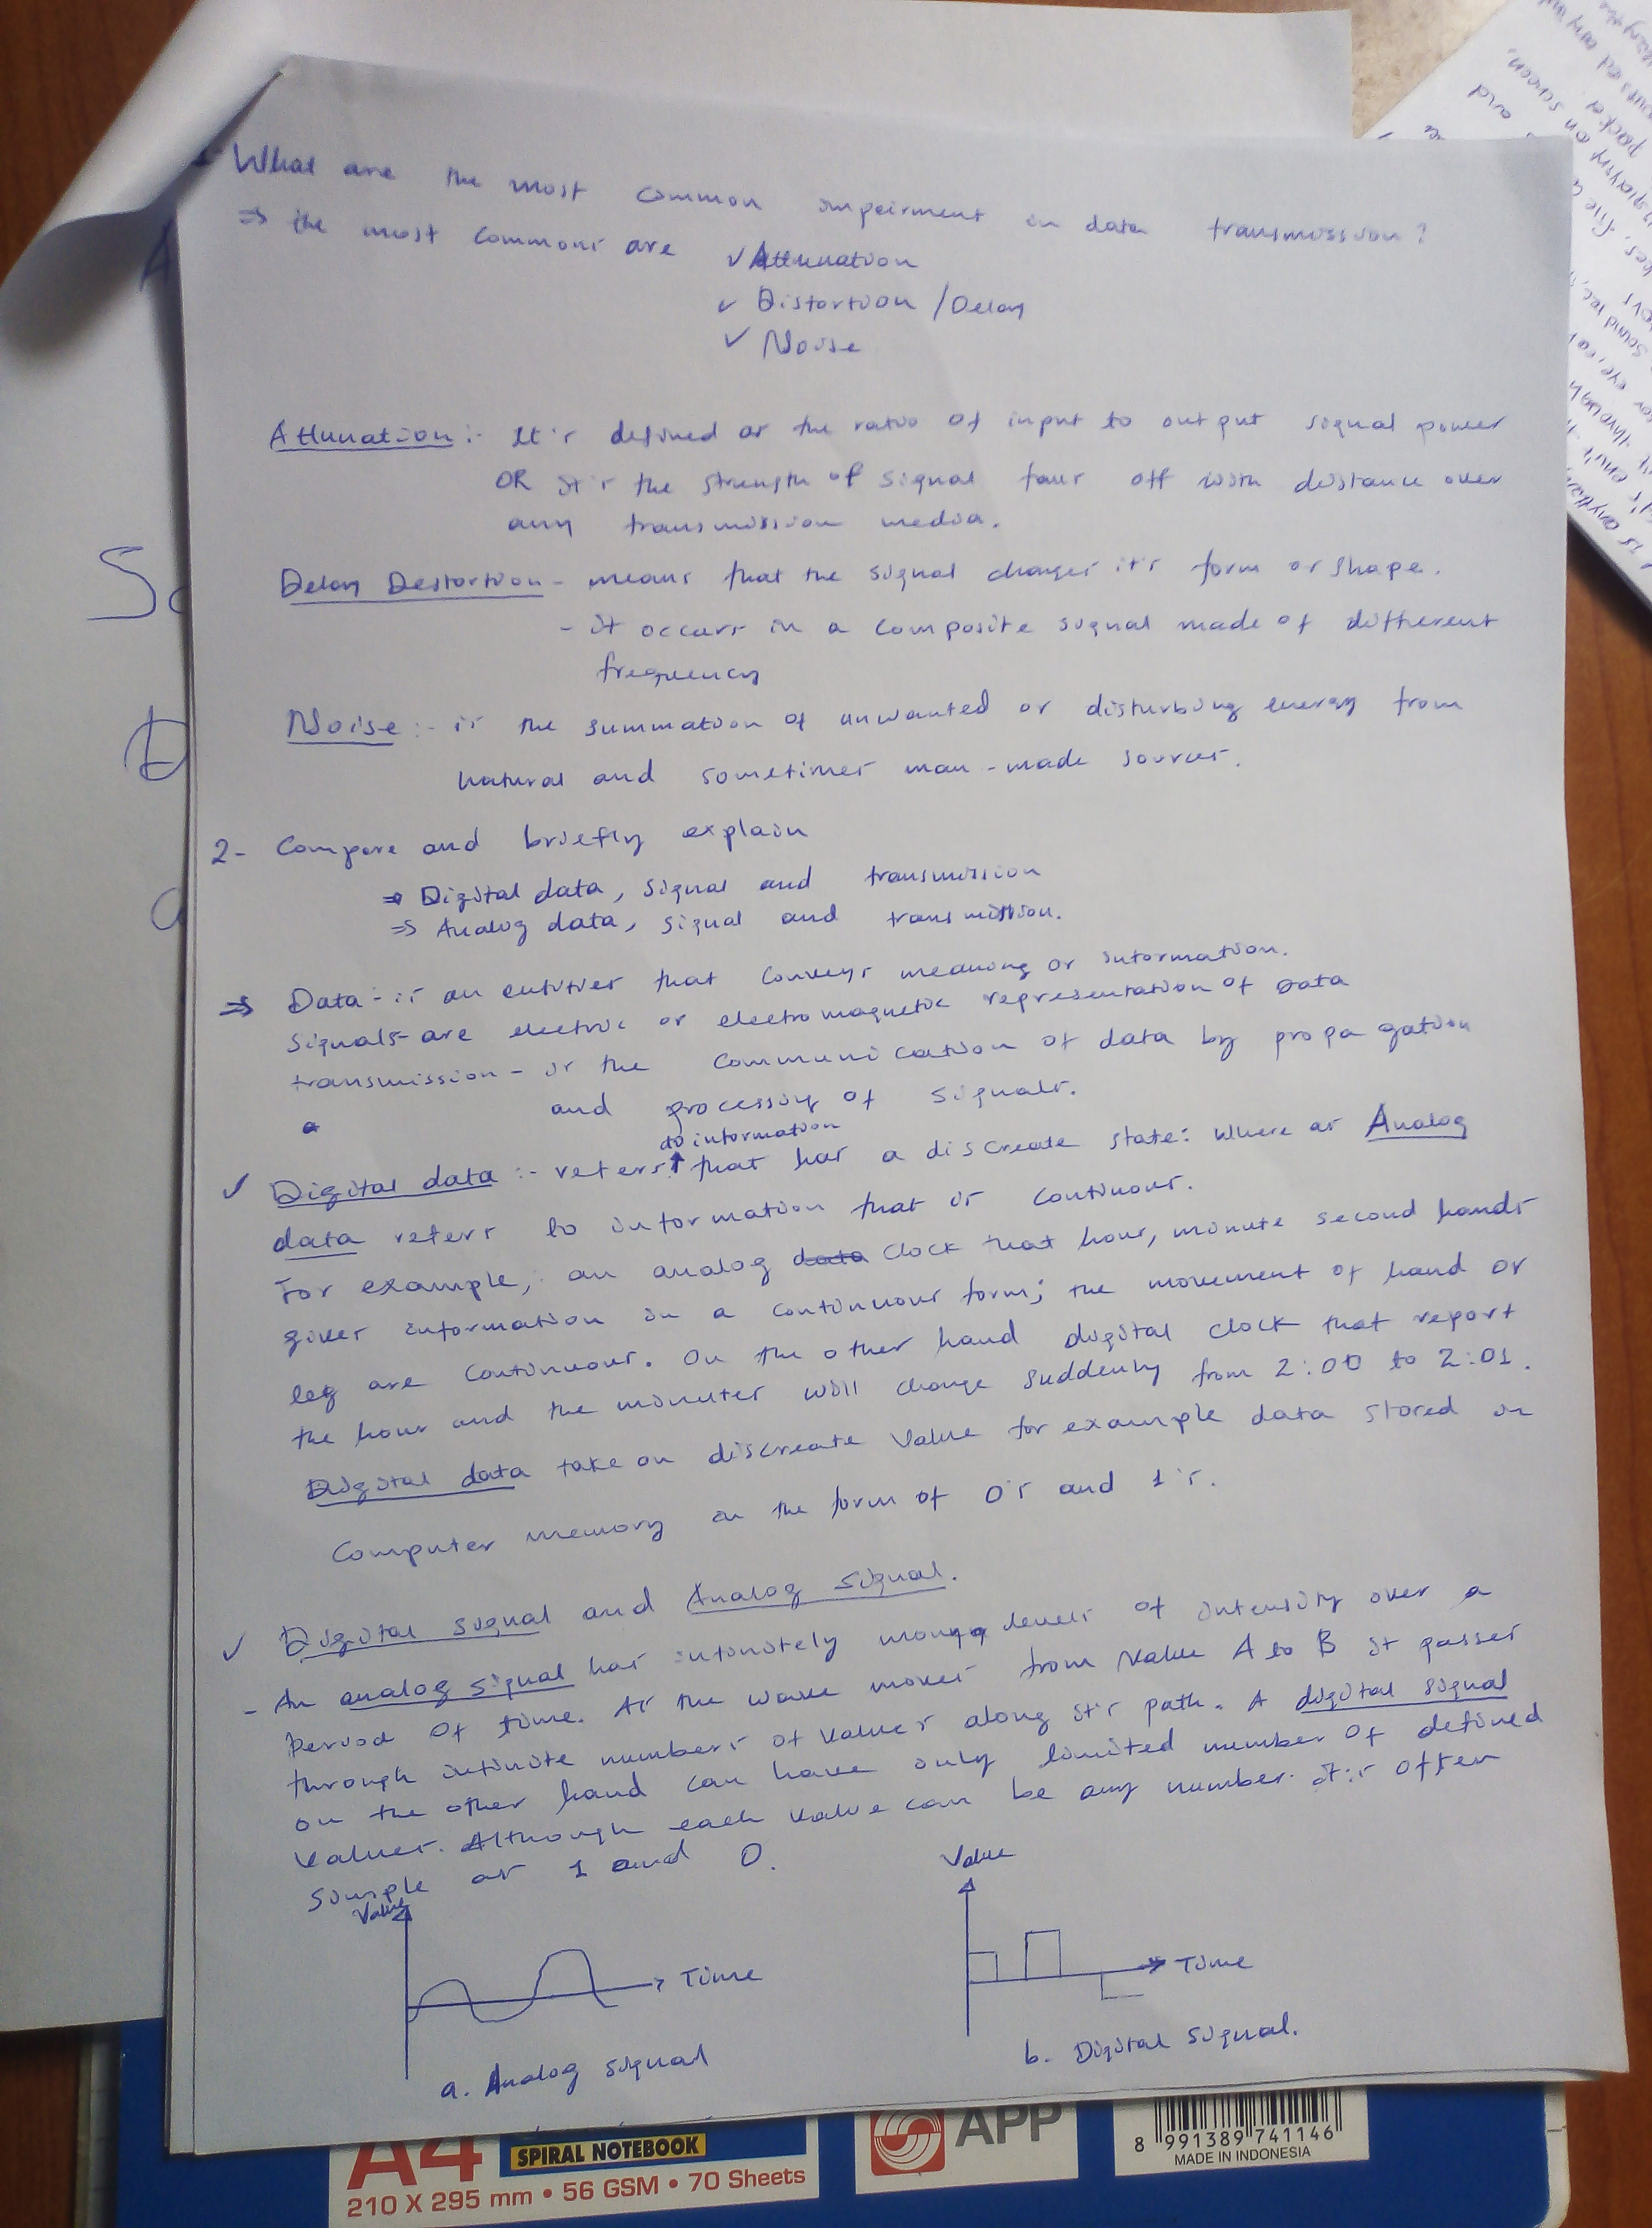 What are the most common impeirment in data transmission?
⇒ the most commons are ✓ Attunuation
✓ Distortion / Delay
✓ Noise
Attunuation :- It's defined as the ratio of input to output signal power
OR it's the strength of signal faus off with distance over
any transmission media.
Delay Destortion - means that the signal changes it's form or shape.
- it occurs in a composite signal made of different
frequency
Noise :- is the summation of unwanted or disturbing energy from
natural and sometimes man-made sources.
2- Compare and briefly explain
⇒ Digital data, signal and transmission
⇒ Analog data, signal and transmission.
⇒ Data - is an entities that conveys meaning or information.
Signals - are electric or electromagnetic representation of data
transmission - is the communication of data by propagation
and processing of signals.
to information
✓ Digital data :- refers ↑ that has a discreate state: where as Analog
data refers to information that is continuous.
For example, an analog data clock that hour, minute second hands
gives information in a continuous form; the movement of hand or
leg are continuous. On the other hand digital clock that report
the hour and the minutes will change suddenly from 2:00 to 2:01.
Digital data take on discreate value for example data stored in
Computer memory in the form of 0's and 1's.
✓ Digital signal and Analog signal.
- An analog signal has infinitely many levels of intensity over a
Period of time. As the wave moves from value A to B it passes
through infinite numbers of values along it's path. A digital signal
on the other hand can have only limited number of defined
values. Although each value can be any number. it is often
simple as 1 and 0.
Value
Value
Time
Time
a. Analog signal
b. Digital signal.
A4
SPIRAL NOTEBOOK
210 X 295 mm • 56 GSM • 70 Sheets
APP
8 991389 741146
MADE IN INDONESIA